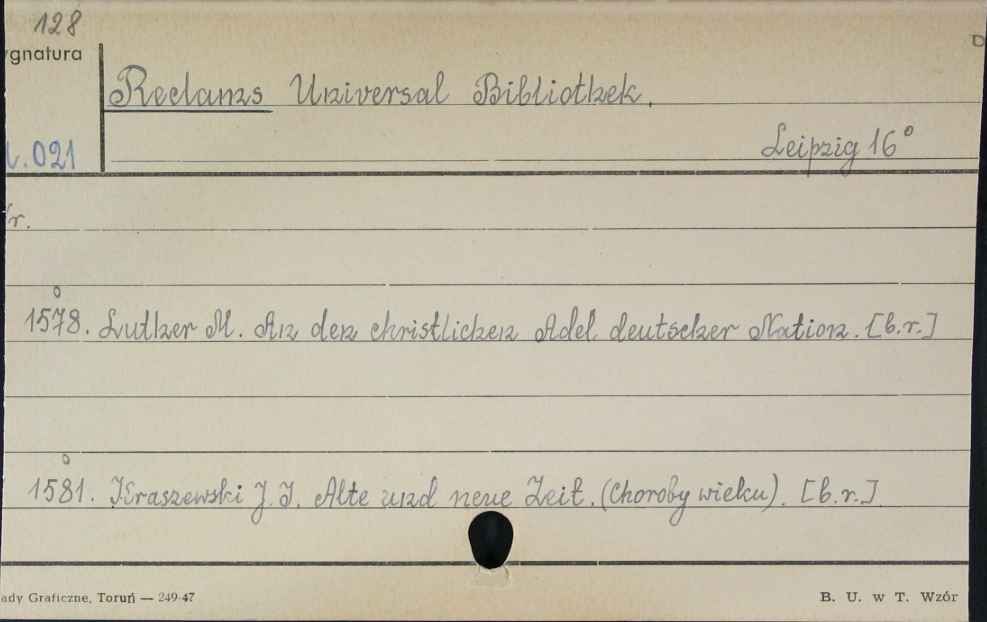 128
ygnatura
Reclams Universal Bibliothek.
021
Leipzig 16°
r.
1578. Luther M. An den christlichen Adel. deutscher Nation. [b.r.]
1581. Kraszewski J. I. Alte und neue Zeit. (Choroby wieku). [b.r.]
ady Graficzne, Toruń — 249-47
B. U. w T. Wzór